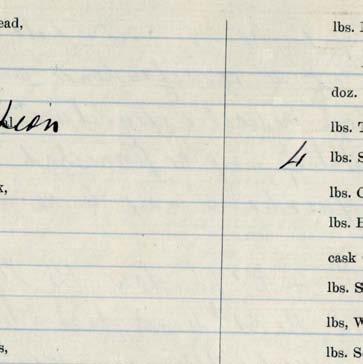 ead,
lbs.
doz.
lbs. T
4 lbs. S
x,
lbs. C
lbs.
cask
lbs. S
lbs, W
s,
lbs. S